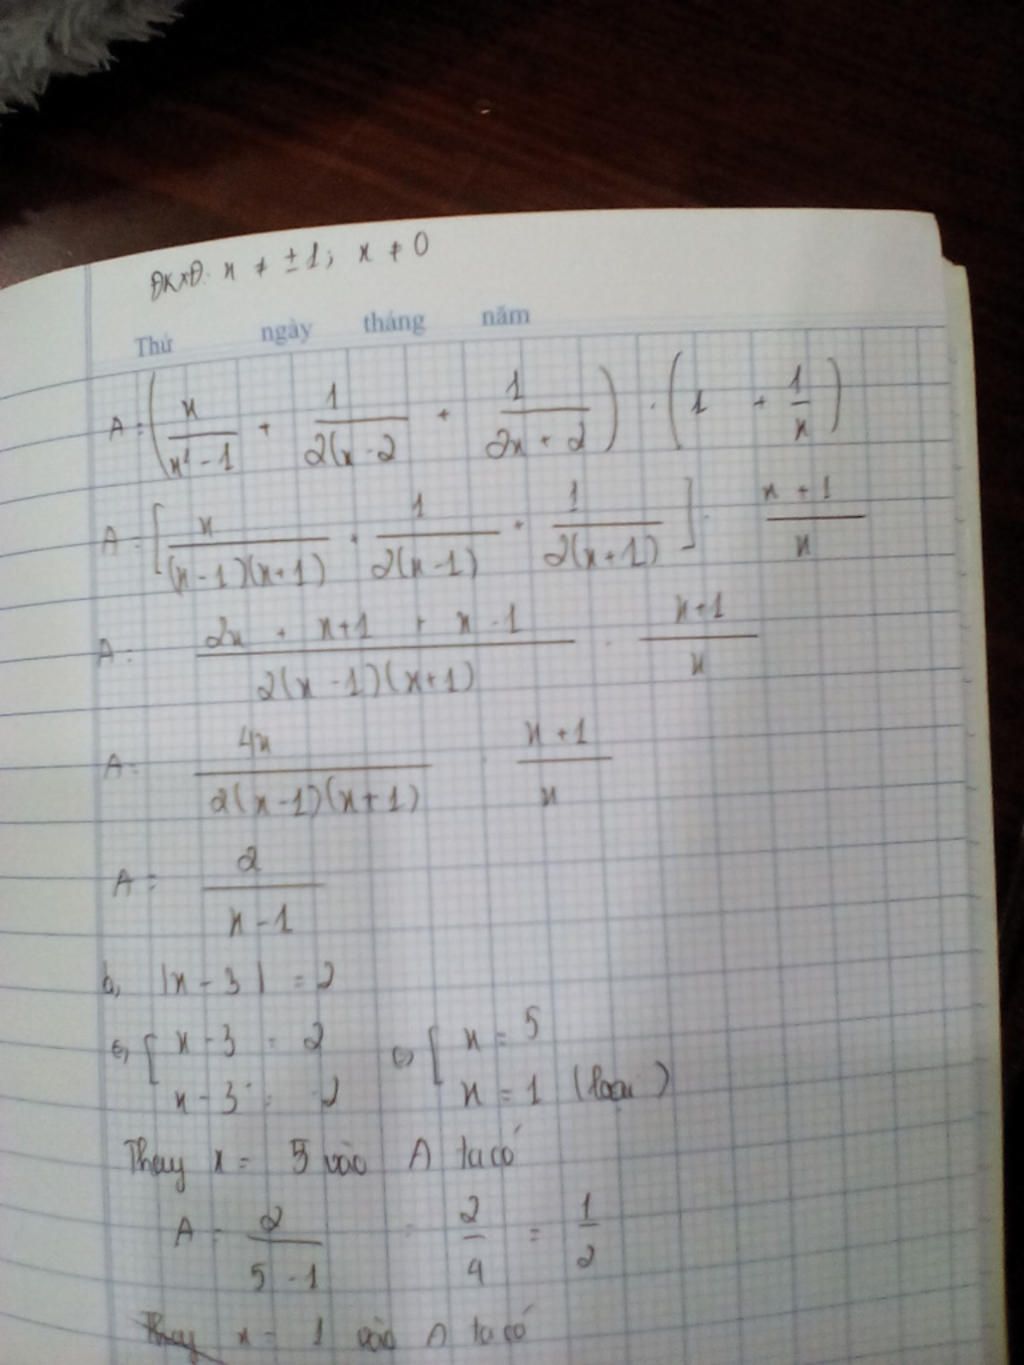 ĐKXĐ: x ≠ ±1; x ≠ 0
Thứ ngày tháng năm
A = (x/(x² - 1) + 1/(2(x - 2) + 1/(2x + 2)) . (1 + 1/x)
A = [x/((x - 1)(x + 1)) + 1/(2(x - 1)) + 1/(2(x + 1))] . (x + 1)/x
A = (2x + x + 1 + x - 1)/(2(x - 1)(x + 1)) . (x + 1)/x
A = 4x/(2(x - 1)(x + 1)) . (x + 1)/x
A = 2/(x - 1)
b, |x - 3| = 2
⇔ [ x - 3 = 2 ⇔ [ x = 5
x - 3 = -2 x = 1 (loại)
Thay x = 5 vào A ta có
A = 2/(5 - 1) = 2/4 = 1/2
Thay x = 1 vào A ta có